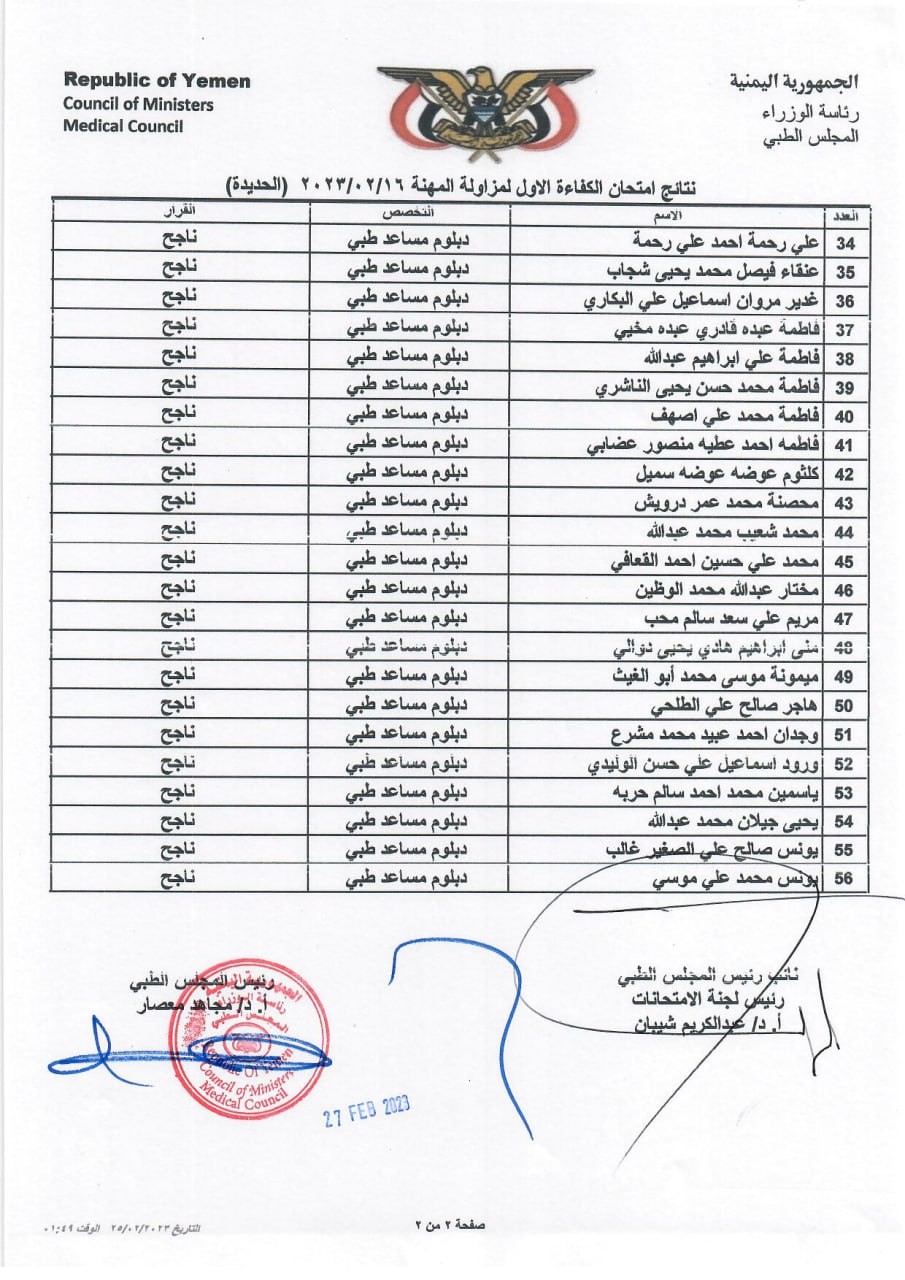 Republic of Yemen
Council of Ministers
Medical Council
الجمهورية اليمنية
رئاسة الوزراء
المجلس الطبي
نتائج امتحان الكفاءة الاول لمزاولة المهنة ٢٠٢٣/٠٢/١٦ (الحديدة)
العدد الاسم التخصص القرار
34 علي رحمة احمد علي رحمة دبلوم مساعد طبي ناجح
35 عنقاء فيصل محمد يحيى شجاب دبلوم مساعد طبي ناجح
36 غدير مروان اسماعيل علي البكاري دبلوم مساعد طبي ناجح
37 فاطمة عبده قادري عبده مخيي دبلوم مساعد طبي ناجح
38 فاطمة علي ابراهيم عبدالله دبلوم مساعد طبي ناجح
39 فاطمة محمد حسن يحيى الناشري دبلوم مساعد طبي ناجح
40 فاطمة محمد علي اصهف دبلوم مساعد طبي ناجح
41 فاطمه احمد عطيه منصور عضابي دبلوم مساعد طبي ناجح
42 كلثوم عوضه عوضه سميل دبلوم مساعد طبي ناجح
43 محصنة محمد عمر درويش دبلوم مساعد طبي ناجح
44 محمد شعيب محمد عبدالله دبلوم مساعد طبي ناجح
45 محمد علي حسين احمد القعافي دبلوم مساعد طبي ناجح
46 مختار عبدالله محمد الوظين دبلوم مساعد طبي ناجح
47 مريم علي سعد سالم محب دبلوم مساعد طبي ناجح
48 منى ابراهيم هادي يحيى دوالي دبلوم مساعد طبي ناجح
49 ميمونة موسى محمد أبو الغيث دبلوم مساعد طبي ناجح
50 هاجر صالح علي الطلحي دبلوم مساعد طبي ناجح
51 وجدان احمد عبيد محمد مشرع دبلوم مساعد طبي ناجح
52 ورود اسماعيل علي حسن الوليدي دبلوم مساعد طبي ناجح
53 ياسمين محمد احمد سالم حربه دبلوم مساعد طبي ناجح
54 يحيى جيلان محمد عبدالله دبلوم مساعد طبي ناجح
55 يونس صالح علي الصغير غالب دبلوم مساعد طبي ناجح
56 يونس محمد علي موسي دبلوم مساعد طبي ناجح
نائب رئيس المجلس الطبي
رئيس لجنة الامتحانات
أ. د/ عبدالكريم شيبان
رئيس المجلس الطبي
أ. د/ مجاهد معصار
الجمهورية اليمنية
رئاسة الوزراء
المجلس الطبي
Republic Of Yemen
Council of Ministers
Medical Council
27 FEB 2023
صفحة ٢ من ٢
التاريخ ٢٥/٠٢/٢٠٢٣ الوقت ٠١:٤٩